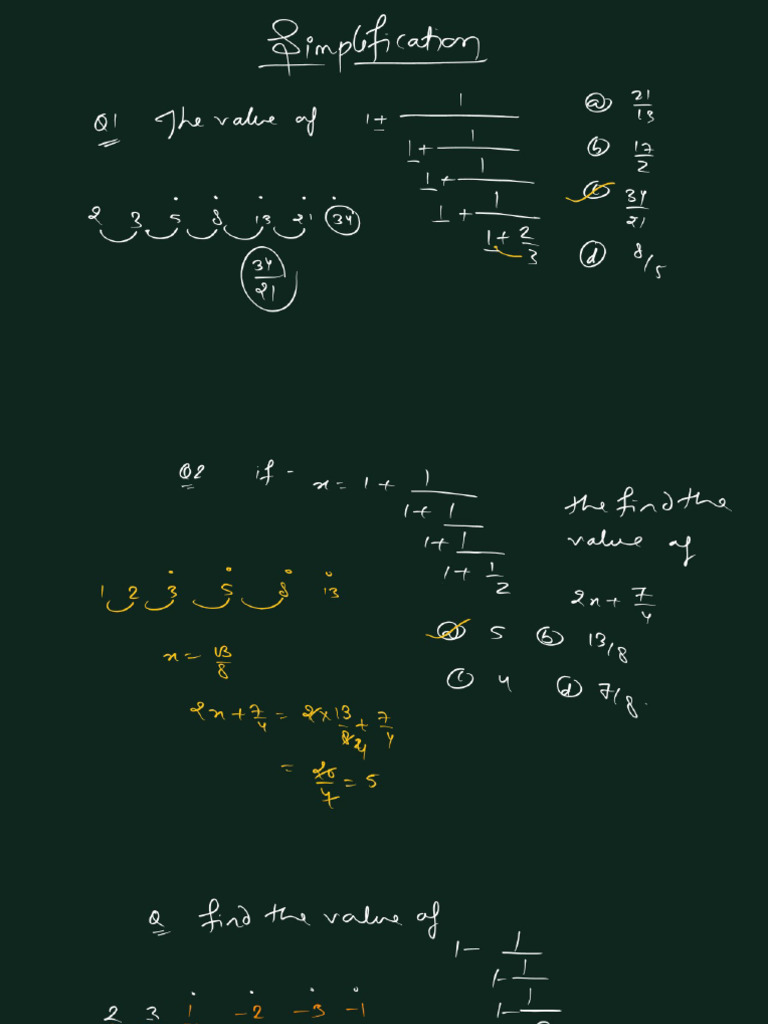 Simplification
Q1 The value of 1+ 1
1+ 1
1+ 1
1+ 1
1+ 2/3
(a) 21/13
(b) 17/2
(c) 34/21
(d) 8/5
2 3 5 8 13 21 34
34/21
Q2 if - x = 1 + 1
1+ 1
1+ 1
1+ 1/2
the find the
value of
2x + 7/4
(a) 5 (b) 13/8
(c) 4 (d) 7/8.
1 2 3 5 8 13
x = 13/8
2x + 7/4 = 2x13/8 4 + 7/4
= 20/4 = 5
Q find the value of
1- 1
1- 1
1- 1
2 3 1 -2 -3 -1